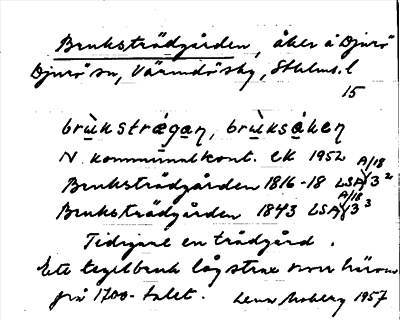 Bruksträdgården, åker å Djurö
Djurö sn, Värmdö skg, Sthlms. l
15
brùkstrǽgaɳ, brùksåkeɳ
N. kommunalkont. ek 1952
Bruksträdgården 1816-18 LSA A/18 3²
Bruksträdgården 1843 LSA A/18 3³
Tidigare en trädgård.
Ett tegelbruk låg strax norr härom
på 1700-talet. Lena Moberg 1957